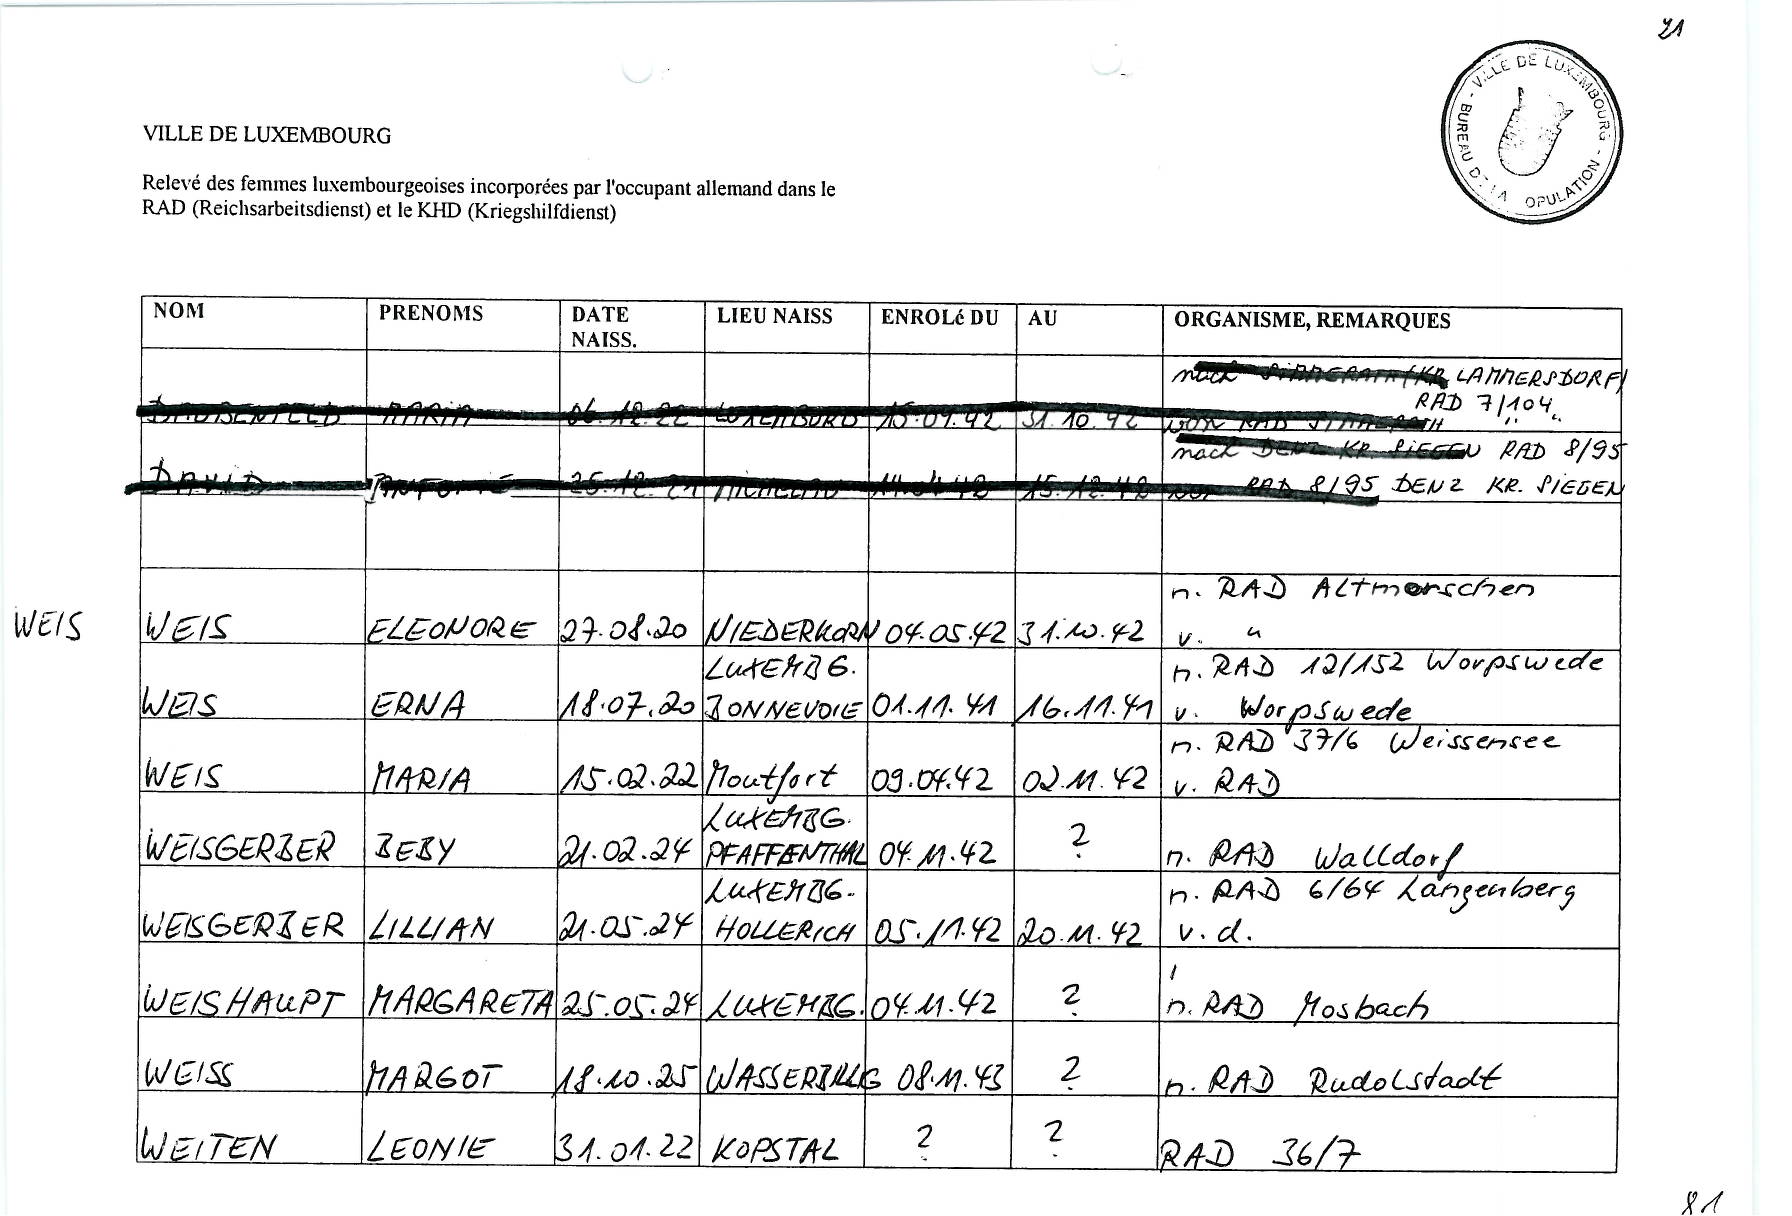 21
VILLE DE LUXEMBOURG - BUREAU DE LA OPULATION -
VILLE DE LUXEMBOURG
Relevé des femmes luxembourgeoises incorporées par l'occupant allemand dans le
RAD (Reichsarbeitsdienst) et le KHD (Kriegshilfdienst)
NOM PRENOMS DATE NAISS. LIEU NAISS ENROLé DU AU ORGANISME, REMARQUES
nach LAMMERSDORF)
RAD 7/104
MARIA 06.12.22 LUXEMBURG 15.04.42 31.10.42 von RAD " "
nach DENZ KR. SIEGEN RAD 8/95
DAVID 15.12.42 RAD 8/95 DENZ KR. SIEGEN
n. RAD Altmorschen
WEIS WEIS ELEONORE 27.08.20 NIEDERKORN 04.05.42 31.10.42 v. "
LUXEMBG. n. RAD 12/152 Worpswede
WEIS ERNA 18.07.20 BONNEVOIE 01.11.41 16.11.41 v. Worpswede
n. RAD 37/6 Weissensee
WEIS MARIA 15.02.22 Moutfort 09.04.42 02.11.42 v. RAD
LUXEMBG.
WEISGERBER BEBY 21.02.24 PFAFFENTHAL 04.11.42 ? n. RAD Walldorf
LUXEMBG. n. RAD 6/64 Langenberg
WEISGERBER LILLIAN 21.05.24 HOLLERICH 05.11.42 20.11.42 v. d.
WEISHAUPT MARGARETA 25.05.24 LUXEMBG. 04.11.42 ? n. RAD Mosbach
WEISS MARGOT 18.10.25 WASSERBILLIG 08.11.43 ? n. RAD Rudolstadt
WEITEN LEONIE 31.01.22 KOPSTAL ? ? RAD 36/7
81